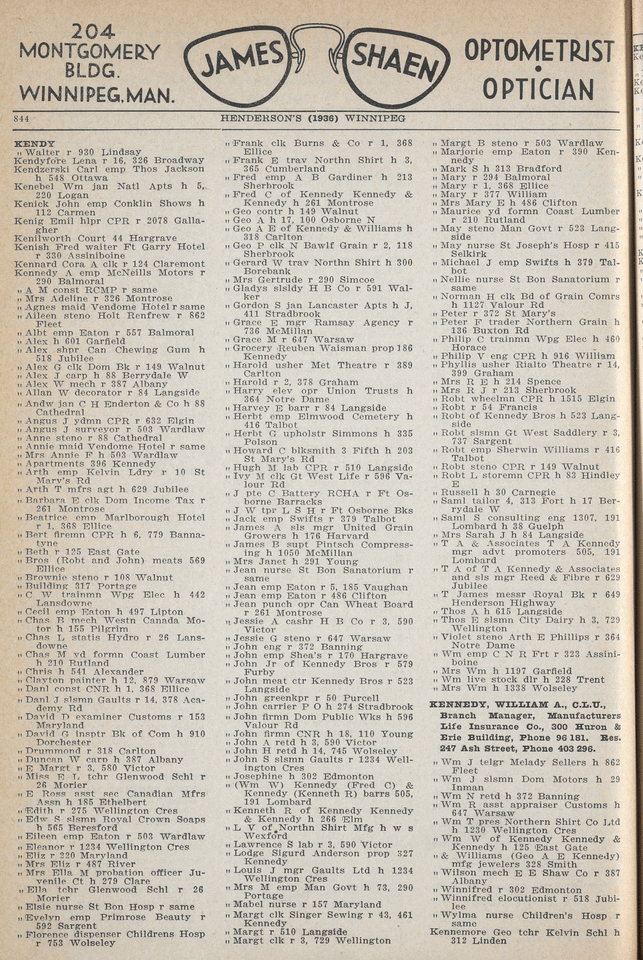 204
MONTGOMERY
BLDG.
WINNIPEG, MAN.
JAMES SHAEN
OPTOMETRIST
•
OPTICIAN
844 HENDERSON'S (1936) WINNIPEG
KENDY
„ Walter r 930 Lindsay
Kendyfore Lena r 16, 326 Broadway
Kendzerski Carl emp Thos Jackson
h 548 Ottawa
Kenebel Wm jan Natl Apts h 5,
220 Logan
Kenick John emp Conklin Shows h
112 Carmen
Kenig Emil hlpr CPR r 2078 Galla-
gher
Kenilworth Court 44 Hargrave
Kenish Fred waiter Ft Garry Hotel
r 330 Assiniboine
Kennard Cora A clk r 124 Claremont
Kennedy A emp McNeills Motors r
290 Balmoral
„ A M const RCMP r same
„ Mrs Adeline r 326 Montrose
„ Agnes maid Vendome Hotel r same
„ Aileen steno Holt Renfrew r 862
Fleet
„ Albt emp Eaton r 557 Balmoral
„ Alex h 601 Garfield
„ Alex shpr Can Chewing Gum h
518 Jubilee
„ Alex G clk Dom Bk r 149 Walnut
„ Alex J carp h 88 Berrydale W
„ Alex W mech r 387 Albany
„ Allan W decorator r 84 Langside
„ Andw jan C H Enderton & Co h 88
Cathedral
„ Angus J ydmn CPR r 632 Elgin
„ Angus J surveyor r 503 Wardlaw
„ Anne steno r 88 Cathedral
„ Annie maid Vendome Hotel r same
„ Mrs Annie F h 503 Wardlaw
„ Apartments 396 Kennedy
„ Arth emp Kelvin Ldry r 10 St
Mary's Rd
„ Arth T mfrs agt h 629 Jubilee
„ Barbara E clk Dom Income Tax r
261 Montrose
„ Beatrice emp Marlborough Hotel
r 1, 368 Ellice
„ Bert firemn CPR h 6, 779 Banna-
tyne
„ Beth r 125 East Gate
„ Bros (Robt and John) meats 569
Ellice
„ Brownie steno r 108 Walnut
„ Building 317 Portage
„ C W trainmn Wpg Elec h 442
Lansdowne
„ Cecil emp Eaton h 497 Lipton
„ Chas B mech Westn Canada Mo-
tor h 155 Pilgrim
„ Chas L statis Hydro r 26 Lans-
downe
„ Chas M yd formn Coast Lumber
h 210 Rutland
„ Chris h 541 Alexander
„ Clayton painter h 12, 879 Warsaw
„ Danl const CNR h 1, 368 Ellice
„ Danl J slsmn Gaults r 14, 378 Aca-
demy Rd
„ David D examiner Customs r 153
Maryland
„ David G insptr Bk of Com h 910
Dorchester
„ Drummond r 318 Carlton
„ Duncan W carp h 387 Albany
„ E Margt r 3, 580 Victor
„ Miss E L tchr Glenwood Schl r
26 Morier
„ E Ross asst sec Canadian Mfrs
Assn h 185 Ethelbert
„ Edith r 275 Wellington Cres
„ Edw S slsmn Royal Crown Soaps
h 565 Beresford
„ Eileen emp Eaton r 503 Wardlaw
„ Eleanor r 1234 Wellington Cres
„ Eliz r 220 Maryland
„ Mrs Eliz r 487 Oliver
„ Mrs Ella M probation officer Ju-
venile Ct h 279 Clare
„ Ella tchr Glenwood Schl r 26
Morier
„ Elsie nurse St Bon Hosp r same
„ Evelyn emp Primrose Beauty r
592 Sargent
„ Florence dispenser Childrens Hosp
r 753 Wolseley
„ Frank clk Burns & Co r 1, 368
Ellice
„ Frank E trav Northn Shirt h 3,
365 Cumberland
„ Fred emp A B Gardiner h 213
Sherbrook
„ Fred C of Kennedy Kennedy &
Kennedy h 261 Montrose
„ Geo contr h 149 Walnut
„ Geo A h 17, 100 Osborne N
„ Geo A E of Kennedy & Williams h
318 Carlton
„ Geo P clk N Bawlf Grain r 2, 118
Sherbrook
„ Gerard W trav Northn Shirt h 300
Borebank
„ Mrs Gertrude r 290 Simcoe
„ Gladys slsldy H B Co r 591 Wal-
ker
„ Gordon S jan Lancaster Apts h J,
411 Stradbrook
„ Grace E mgr Ramsay Agency r
736 McMillan
„ Grace M r 647 Warsaw
„ Grocery Reuben Waisman prop 186
Kennedy
„ Harold usher Met Theatre r 389
Carlton
„ Harold r 2, 378 Graham
„ Harry elev opr Union Trusts h
364 Notre Dame
„ Harvey E barr r 84 Langside
„ Herbt emp Elmwood Cemetery h
416 Talbot
„ Herbt G upholstr Simmons h 335
Polson
„ Howard C blksmith 3 Fifth h 203
St Mary's Rd
„ Hugh M lab CPR r 510 Langside
„ Ivy M clk Gt West Life r 596 Va-
lour Rd
„ J pte C Battery RCHA r Ft Os-
borne Barracks
„ J W tpr L S H r Ft Osborne Bks
„ Jack emp Swifts r 379 Talbot
„ James A sls mgr United Grain
Growers h 176 Harvard
„ James B supt Pintsch Compress-
ing h 1050 McMillan
„ Mrs Janet h 291 Young
„ Jean nurse St Bon Sanatorium r
same
„ Jean emp Eaton r 5, 185 Vaughan
„ Jean emp Eaton r 486 Clifton
„ Jean punch opr Can Wheat Board
r 261 Montrose
„ Jessie A cashr H B Co r 3, 590
Victor
„ Jessie G steno r 647 Warsaw
„ John eng r 372 Banning
„ John emp Shea's r 170 Hargrave
„ John Jr of Kennedy Bros r 579
Furby
„ John meat ctr Kennedy Bros r 523
Langside
„ John greenkpr r 50 Purcell
„ John carrier P O h 274 Stradbrook
„ John firmn Dom Public Wks h 596
Valour Rd
„ John firmn CNR h 18, 110 Young
„ John A retd h 3, 590 Victor
„ John H retd h 14, 745 Wolseley
„ John S slsmn Gaults r 1234 Well-
ington Cres
„ Josephine h 302 Edmonton
„ (Wm W) Kennedy (Fred C) &
Kennedy (Kenneth R) barrs 505,
191 Lombard
„ Kenneth R of Kennedy Kennedy
& Kennedy h 266 Elm
„ L V of Northn Shirt Mfg h w s
Wexford
„ Lawrence S lab r 3, 590 Victor
„ Lodge Sigurd Anderson prop 327
Kennedy
„ Louis J mgr Gaults Ltd h 1234
Wellington Cres
„ Mrs M emp Man Govt h 73, 290
Portage
„ Mabel nurse r 157 Maryland
„ Margt clk Singer Sewing r 43, 461
Kennedy
„ Margt r 510 Langside
„ Margt clk r 3, 729 Wellington
„ Margt B steno r 503 Wardlaw
„ Marjorie emp Eaton r 390 Ken-
nedy
„ Mark S h 313 Bradford
„ Mary r 294 Balmoral
„ Mary r 1, 368 Ellice
„ Mary r 377 William
„ Mrs Mary E h 486 Clifton
„ Maurice yd formn Coast Lumber
r 210 Rutland
„ May steno Man Govt r 523 Lang-
side
„ May nurse St Joseph's Hosp r 415
Selkirk
„ Michael J emp Swifts h 379 Tal-
bot
„ Nellie nurse St Bon Sanatorium r
same
„ Norman H clk Bd of Grain Comrs
h 1127 Valour Rd
„ Peter r 372 St Mary's
„ Peter F trader Northern Grain h
136 Buxton Rd
„ Philip C trainmn Wpg Elec h 460
Horace
„ Philip V eng CPR h 916 William
„ Phyllis usher Rialto Theatre r 14,
399 Graham
„ Mrs R E h 214 Spence
„ Mrs R J r 213 Sherbrook
„ Robt wheelmn CPR h 1515 Elgin
„ Robt r 54 Francis
„ Robt of Kennedy Bros h 523 Lang-
side
„ Robt slsmn Gt West Saddlery r 3,
737 Sargent
„ Robt emp Sherwin Williams r 416
Talbot
„ Robt steno CPR r 149 Walnut
„ Robt L storemn CPR h 83 Hindley
E
„ Russell h 30 Carnegie
„ Saml tailor 4, 313 Fort h 17 Ber-
rydale W
„ Saml S consulting eng 1307, 191
Lombard h 38 Guelph
„ Mrs Sarah J h 84 Langside
„ T A & Associates T A Kennedy
mgr advt promoters 505, 191
Lombard
„ T A of T A Kennedy & Associates
and sls mgr Reed & Fibre r 629
Jubilee
„ T James messr Royal Bk r 649
Henderson Highway
„ Thos A h 615 Langside
„ Thos E slsmn City Dairy h 3, 729
Wellington
„ Violet steno Arth E Phillips r 364
Notre Dame
„ Wm emp C N R Frt r 323 Assini-
boine
„ Mrs Wm h 1197 Garfield
„ Wm live stock dlr h 228 Trent
„ Mrs Wm h 1338 Wolseley
KENNEDY, WILLIAM A., C.L.U.,
Branch Manager, Manufacturers
Life Insurance Co., 300 Huron &
Erie Building, Phone 96 181. Res.
247 Ash Street, Phone 403 296.
„ Wm J telgr Melady Sellers h 862
Fleet
„ Wm J slsmn Dom Motors h 29
Inman
„ Wm N retd h 372 Banning
„ Wm R asst appraiser Customs h
647 Warsaw
„ Wm T pres Northern Shirt Co Ltd
h 1230 Wellington Cres
„ Wm W of Kennedy Kennedy &
Kennedy h 125 East Gate
„ & Williams (Geo A E Kennedy)
mfg jewelers 328 Smith
„ Wilson mech E E Shaw Co r 387
Albany
„ Winnifred r 302 Edmonton
„ Winnifred elocutionist r 518 Jubi-
lee
„ Wylma nurse Children's Hosp r
same
Kennemore Geo tchr Kelvin Schl h
312 Linden